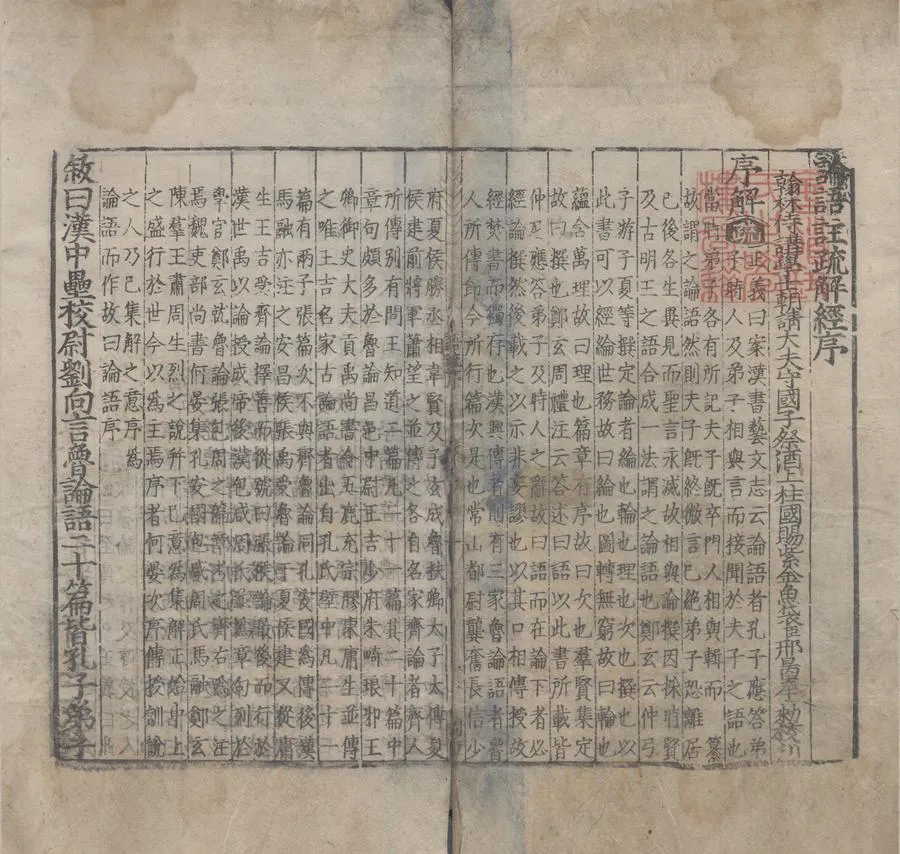 論語註疏解經序
翰林侍講學士朝請大夫守國子祭酒上柱國賜紫金魚袋臣邢昺奉勅校
序解疏正義曰案漢書藝文志云論語者孔子應答弟
子時人及弟子相與言而接聞於夫子之語也
當時弟子各有所記夫子既卒門人相與輯而論纂
故謂之論語然則夫子既終微言已絕弟子恐離居
已後各生異見而聖言永滅故相與論撰因採時賢
及古明王之語合成一法謂之論語也鄭玄云仲弓
子游子夏等撰定論者綸也輪也理也次也撰也以
此書可以經綸世務故曰綸也圓轉無窮故曰輪也
蘊含萬理故曰理也篇章有序故曰次也羣賢集定
故曰撰也鄭玄周禮注云答述曰語以此書所載皆
仲尼應答弟子及時人之辭故曰語而在論下者必
經論撰然後載之以示非妄謬也以其口相傳授故
經焚書而獨存也漢興傳者則有三家魯論語者魯
人所傳即今所行篇次是也常山都尉龔奮長信少
府夏侯勝丞相韋賢及子玄成魯扶卿太子太傅夏
侯建前將軍蕭望之並傳之各自名家齊論者齊人
所傳別有問王知道二篇凡二十二篇其二十篇中
章句頗多於魯論昌邑中尉王吉少府朱畸琅邪王
卿御史大夫貢禹尚書令五鹿充宗膠東庸生並傳
之唯王吉名家古論語者出自孔氏壁中凡二十一
篇有兩子張篇次不與齊魯論同孔安國為傳後漢
馬融亦注之安昌侯張禹受魯論于夏侯建又從庸
生王吉受齊論擇善而從號曰張侯論最後而行於
漢世禹以論授成帝後漢包咸周氏並為章句列於
學官鄭玄就魯論張包周之篇章考之齊古為之注
焉魏吏部尚書何晏集孔安國包咸周氏馬融鄭玄
陳羣王肅周生烈之說并下己意為集解正始中上
之盛行於世今以為主焉序者何晏次序傳授訓說
之人乃己集解之意序為
論語而作故曰論語序
敘曰漢中壘校尉劉向言魯論語二十篇皆孔子弟子